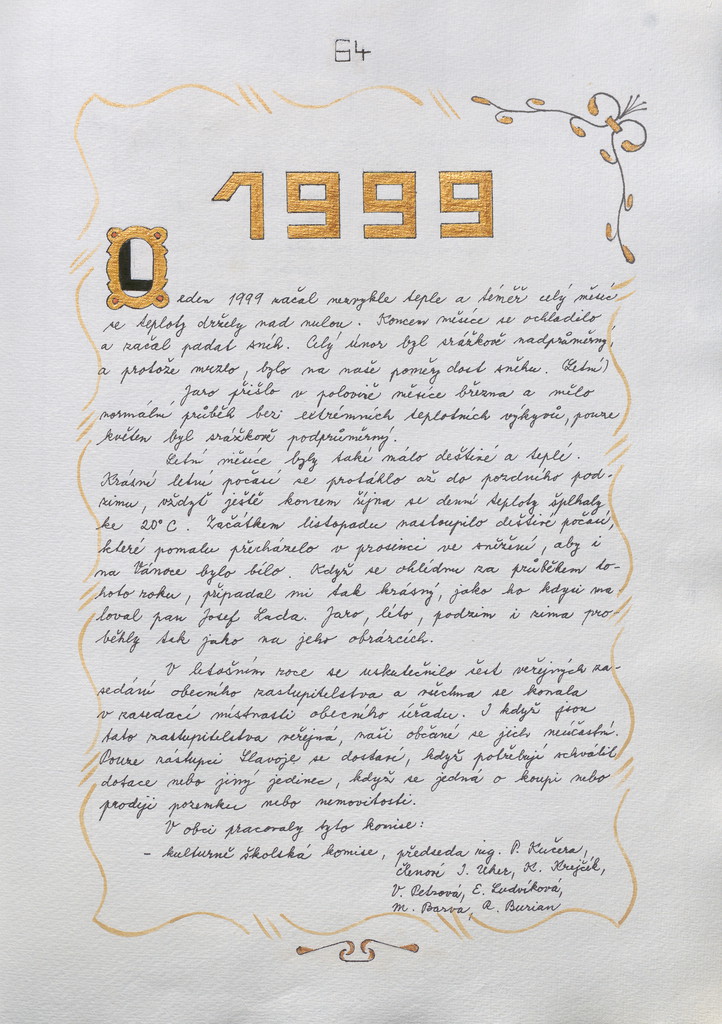 64
1999
Leden 1999 začal nezvykle teple a téměř celý měsíc
se teploty držely nad nulou. Koncem měsíce se ochladilo
a začal padat sníh. Celý únor byl srážkově nadprůměrný,
a protože mrzlo, bylo na naše poměry dost sněhu. (Letní)
Jaro přišlo v polovině měsíce března a mělo
normální průběh bez extrémních teplotních výkyvů, pouze
květen byl srážkově podprůměrný.
Letní měsíce byly také málo deštivé a teplé.
Krásné letní počasí se protáklo až do pozdního pod-
zimu, vždyť ještě koncem října se denní teploty šplhaly
ke 20°C. Začátkem listopadu nastoupilo deštivé počasí,
které pomalu přecházelo v prosinci ve sněžení, aby i
na Vánoce bylo bílo. Když se ohlédnu za průběhem to-
hoto roku, připadal mi tak krásný, jako ho kdysi ma-
loval pan Josef Lada. Jaro, léto, podzim i zima pro-
běhly tak jako na jeho obrázcích.
V letošním roce se uskutečnilo šest veřejných za-
sedání obecního zastupitelstva a všechna se konala
v zasedací místnosti obecního úřadu. I když jsou
tato zastupitelstva veřejná, naši občané se jich neúčastní.
Pouze zástupci Slavoje se dostaví, když potřebují schválit
dotace nebo jiný jedinec, když se jedná o koupi nebo
prodeji pozemku nebo nemovitosti.
V obci pracovaly tyto komise:
- kulturně školská komise, předseda ing. P. Kučera,
členové I. Uher, K. Krejčík,
V. Petrová, E. Ludvíková,
M. Barva, R. Burian